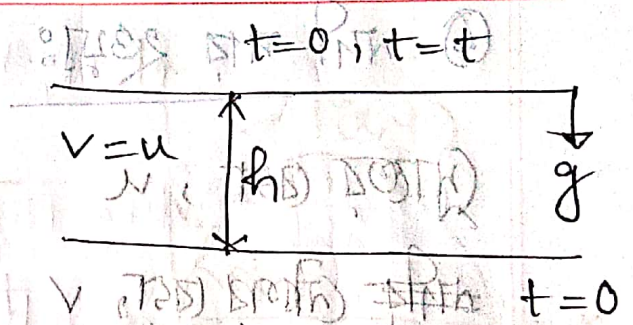 t=0, t=t
v=u
h
g
t=0